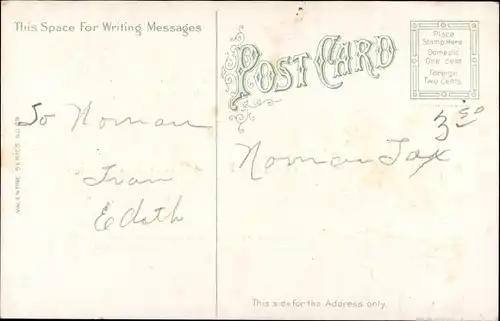 This Space For Writing Messages
POST CARD
Place
Stamp Here
Domestic
One cent
Foreign
Two Cents
3 50
To Norman
From
Edith
Norman Fox
VALENTINE SERIES NO.
This side for the Address only.